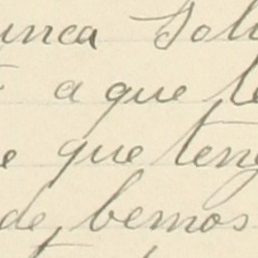 unca Soli
a que te
e que teng
de, bemos